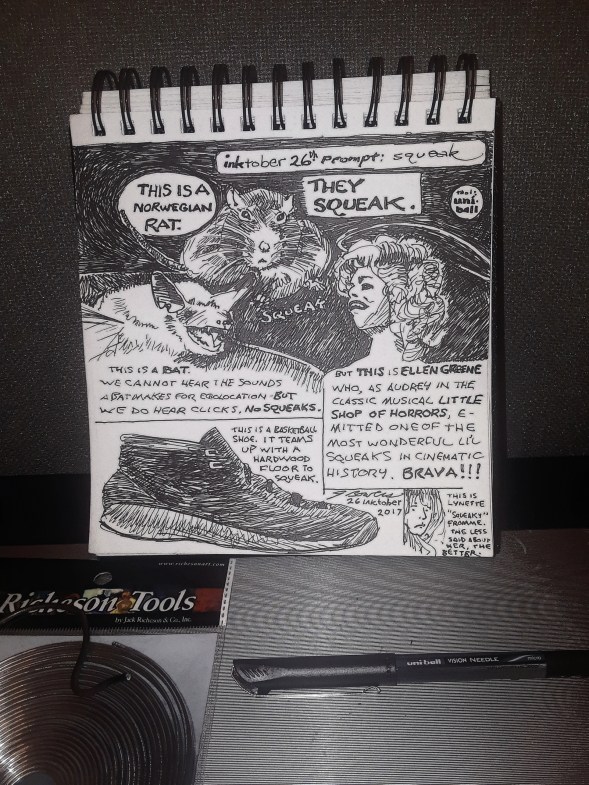 inktober 26th Prompt: squeak
THIS IS A
NORWEGIAN
RAT.
THEY
SQUEAK.
uni-
ball
SQUEAK
THIS IS A BAT.
WE CANNOT HEAR THE SOUNDS
A BAT MAKES FOR ECOLOCATION - BUT
WE DO HEAR CLICKS, NO SQUEAKS.
BUT THIS IS ELLEN GREENE
WHO, AS AUDREY IN THE
CLASSIC MUSICAL LITTLE
SHOP OF HORRORS, E-
MITTED ONE OF THE
MOST WONDERFUL LI'L
SQUEAKS IN CINEMATIC
HISTORY. BRAVA!!!
THIS IS A BASKETBALL
SHOE. IT TEAMS
UP WITH A
HARDWOOD
FLOOR TO
SQUEAK.
26 inktober
2017
THIS IS
LYNETTE
"SQUEAKY"
FROMME.
THE LESS
SAID ABOUT
HER, THE
BETTER.
www.richesonart.com
Richeson Tools
by Jack Richeson & Co., Inc.
uni-ball VISION NEEDLE